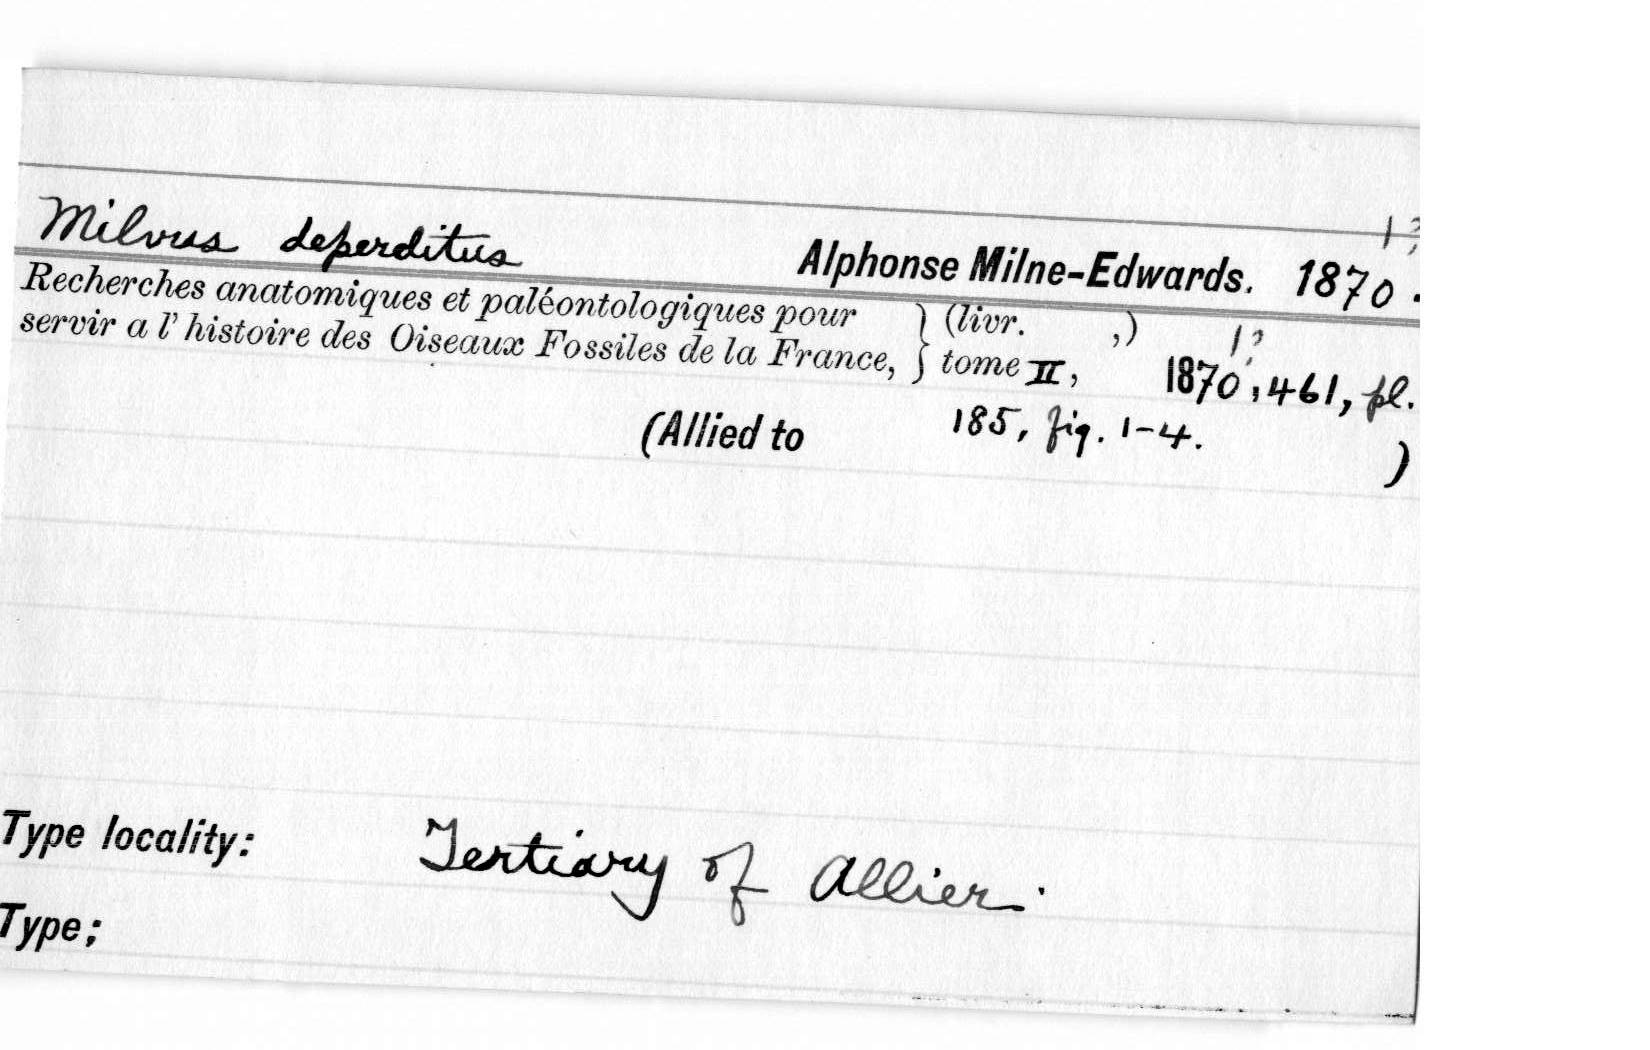 1?
Milvus deperditus Alphonse Milne-Edwards. 1870.
Recherches anatomiques et paléontologiques pour } (livr. ,) 1?
servir a l' histoire des Oiseaux Fossiles de la France, } tome II, 1870, 461, pl.
(Allied to 185, fig. 1-4. )
Type locality: Tertiary of Allier.
Type;